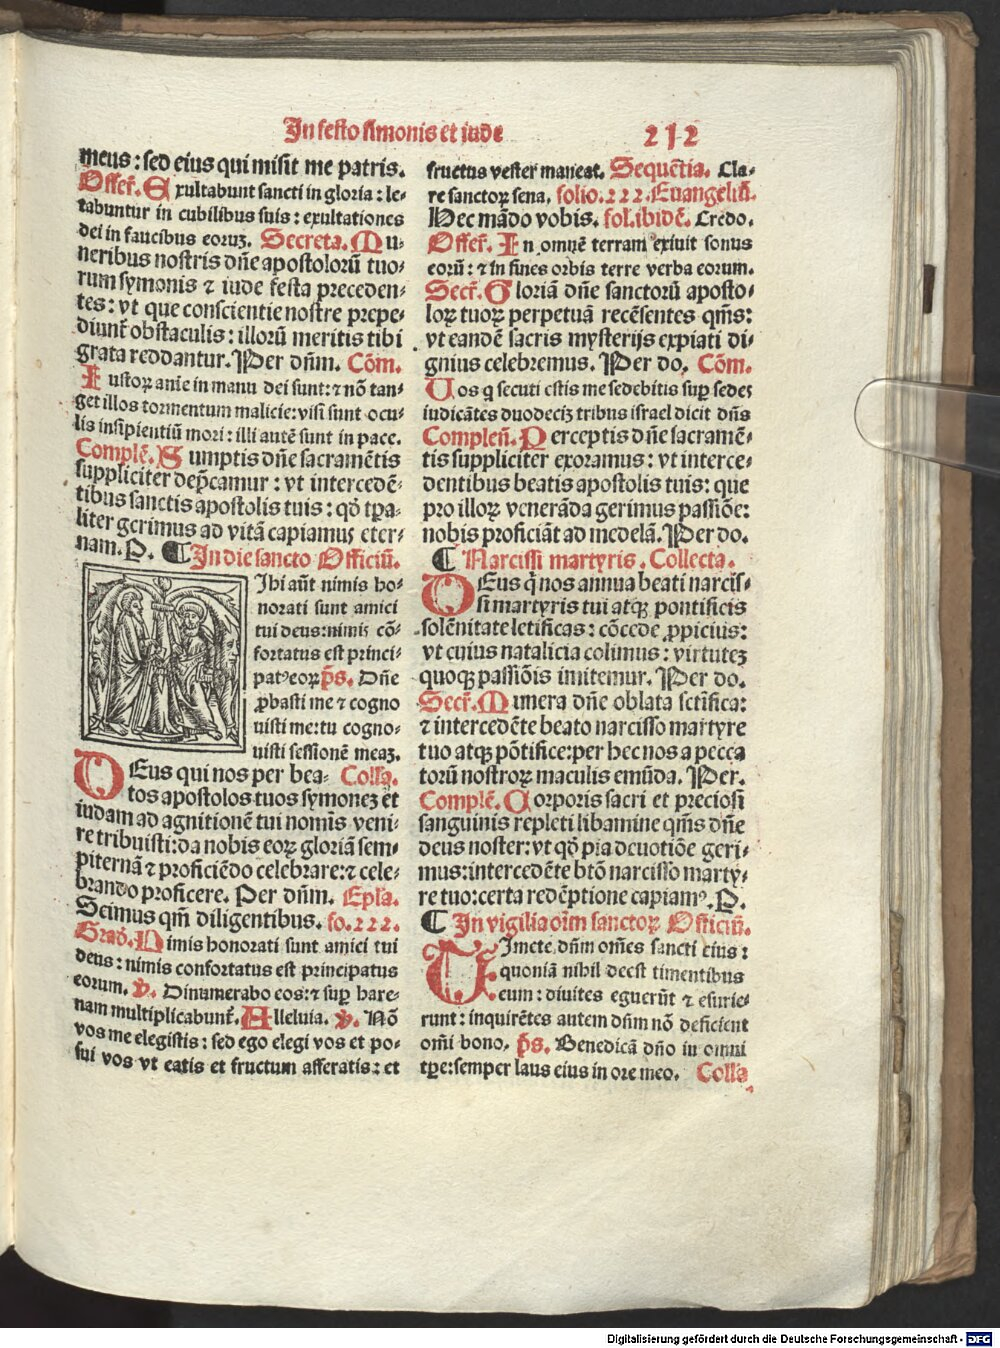 In festo simonis et iude
212
meus: sed eius qui misit me patris.
Offer̄. Exultabunt sancti in gloria: le-
tabuntur in cubilibus suis: exultationes
dei in faucibus eoruꝫ. Secreta. Mu-
neribus nostris dn̄e apostolorū tuo-
rum symonis ⁊ iude festa preceden-
tes: vt que conscientie nostre prepe-
diunt̄ obstaculis: illorū meritis tibi
grata reddantur. Per dn̄m. Cōm.
Iustoꝝ anie in manu dei sunt: ⁊ nō tan-
get illos tormentum malicie: visi sunt ocu-
lis insipientiū mori: illi autē sunt in pace.
Complē. Sumptis dn̄e sacramētis
suppliciter dep̄camur: vt intercedē-
tibus sanctis apostolis tuis: qd̄ tp̄a-
liter gerimus ad vitā capiamus eter-
nam. P. ¶ In die sancto Officiū.
Ibi aūt nimis ho-
norati sunt amici
tui deus: nimis cō-
fortatus est princi-
patꝰ eoꝝ p̄s. Dn̄e
ꝓbasti me ⁊ cogno
uisti me: tu cogno-
uisti sessionē meaꝫ.
DEus qui nos per bea- Coll̄a.
tos apostolos tuos symoneꝫ et
iudam ad agnitionē tui nomīs veni-
re tribuisti: da nobis eoꝝ gloriā sem-
piternā ⁊ proficiēdo celebrare: ⁊ cele-
brando proficere. Per dn̄m. Epl̄a.
Scimus qm̄ diligentibus. fo. 222.
Grad̄. Nimis honorati sunt amici tui
deus: nimis confortatus est principatus
eorum. ℣. Dinumerabo eos: ⁊ suꝑ hare-
nam multiplicabunt̄. Alleluia. ℣. Nō
vos me elegistis: sed ego elegi vos et po-
sui vos vt eatis et fructum afferatis: et
fructus vester maneat. Sequētia. Cla-
re sanctoꝝ sena. folio. 222. Euangeliū.
Hec mādo vobis. fol. ibidē. Credo.
Offer̄. In omnē terram exiuit sonus
eorū: ⁊ in fines orbis terre verba eorum.
Secr̄. Gloriā dn̄e sanctorū aposto-
loꝝ tuoꝝ perpetuā recēsentes qm̄s:
vt eandē sacris mysterijs expiati di-
gnius celebremus. Per do. Cōm.
Uos q̄ secuti estis me sedebitis suꝑ sedes
iudicātes duodeciꝫ tribus israel dicit dn̄s
Complen̄. Perceptis dn̄e sacramē-
tis suppliciter exoramus: vt interce-
dentibus beatis apostolis tuis: que
pro illoꝝ venerāda gerimus passiōe:
nobis proficiāt ad medelā. Per do.
¶ Narcissi martyris. Collecta.
DEus q̄ nos annua beati narcis-
si martyris tui atqꝫ pontificis
solēnitate letificas: cōcede ꝓpicius:
vt cuius natalicia colimus: virtuteꝫ
quoqꝫ passiōis imitemur. Per do.
Secr̄. Munera dn̄e oblata scīfica:
⁊ intercedēte beato narcisso martyre
tuo atqꝫ pōtifice: per hec nos a pecca
torū nostroꝝ maculis emūda. Per.
Complē. Corporis sacri et preciosi
sanguinis repleti libamine qm̄s dn̄e
deus noster: vt qd̄ pia deuotiōe geri-
mus: intercedēte btō narcisso marty-
re tuo: certa redēptione capiamꝰ. P.
¶ In vigilia oīm sanctoꝝ Officiū.
TImete dn̄m om̄es sancti eius:
quoniā nihil deest timentibus
eum: diuites eguerūt ⁊ esurie-
runt: inquirētes autem dn̄m nō deficient
om̄i bono. p̄s. Benedicā dn̄o in omni
tp̄e: semper laus eius in ore meo. Coll̄a
Digitalisierung gefördert durch die Deutsche Forschungsgemeinschaft - DFG